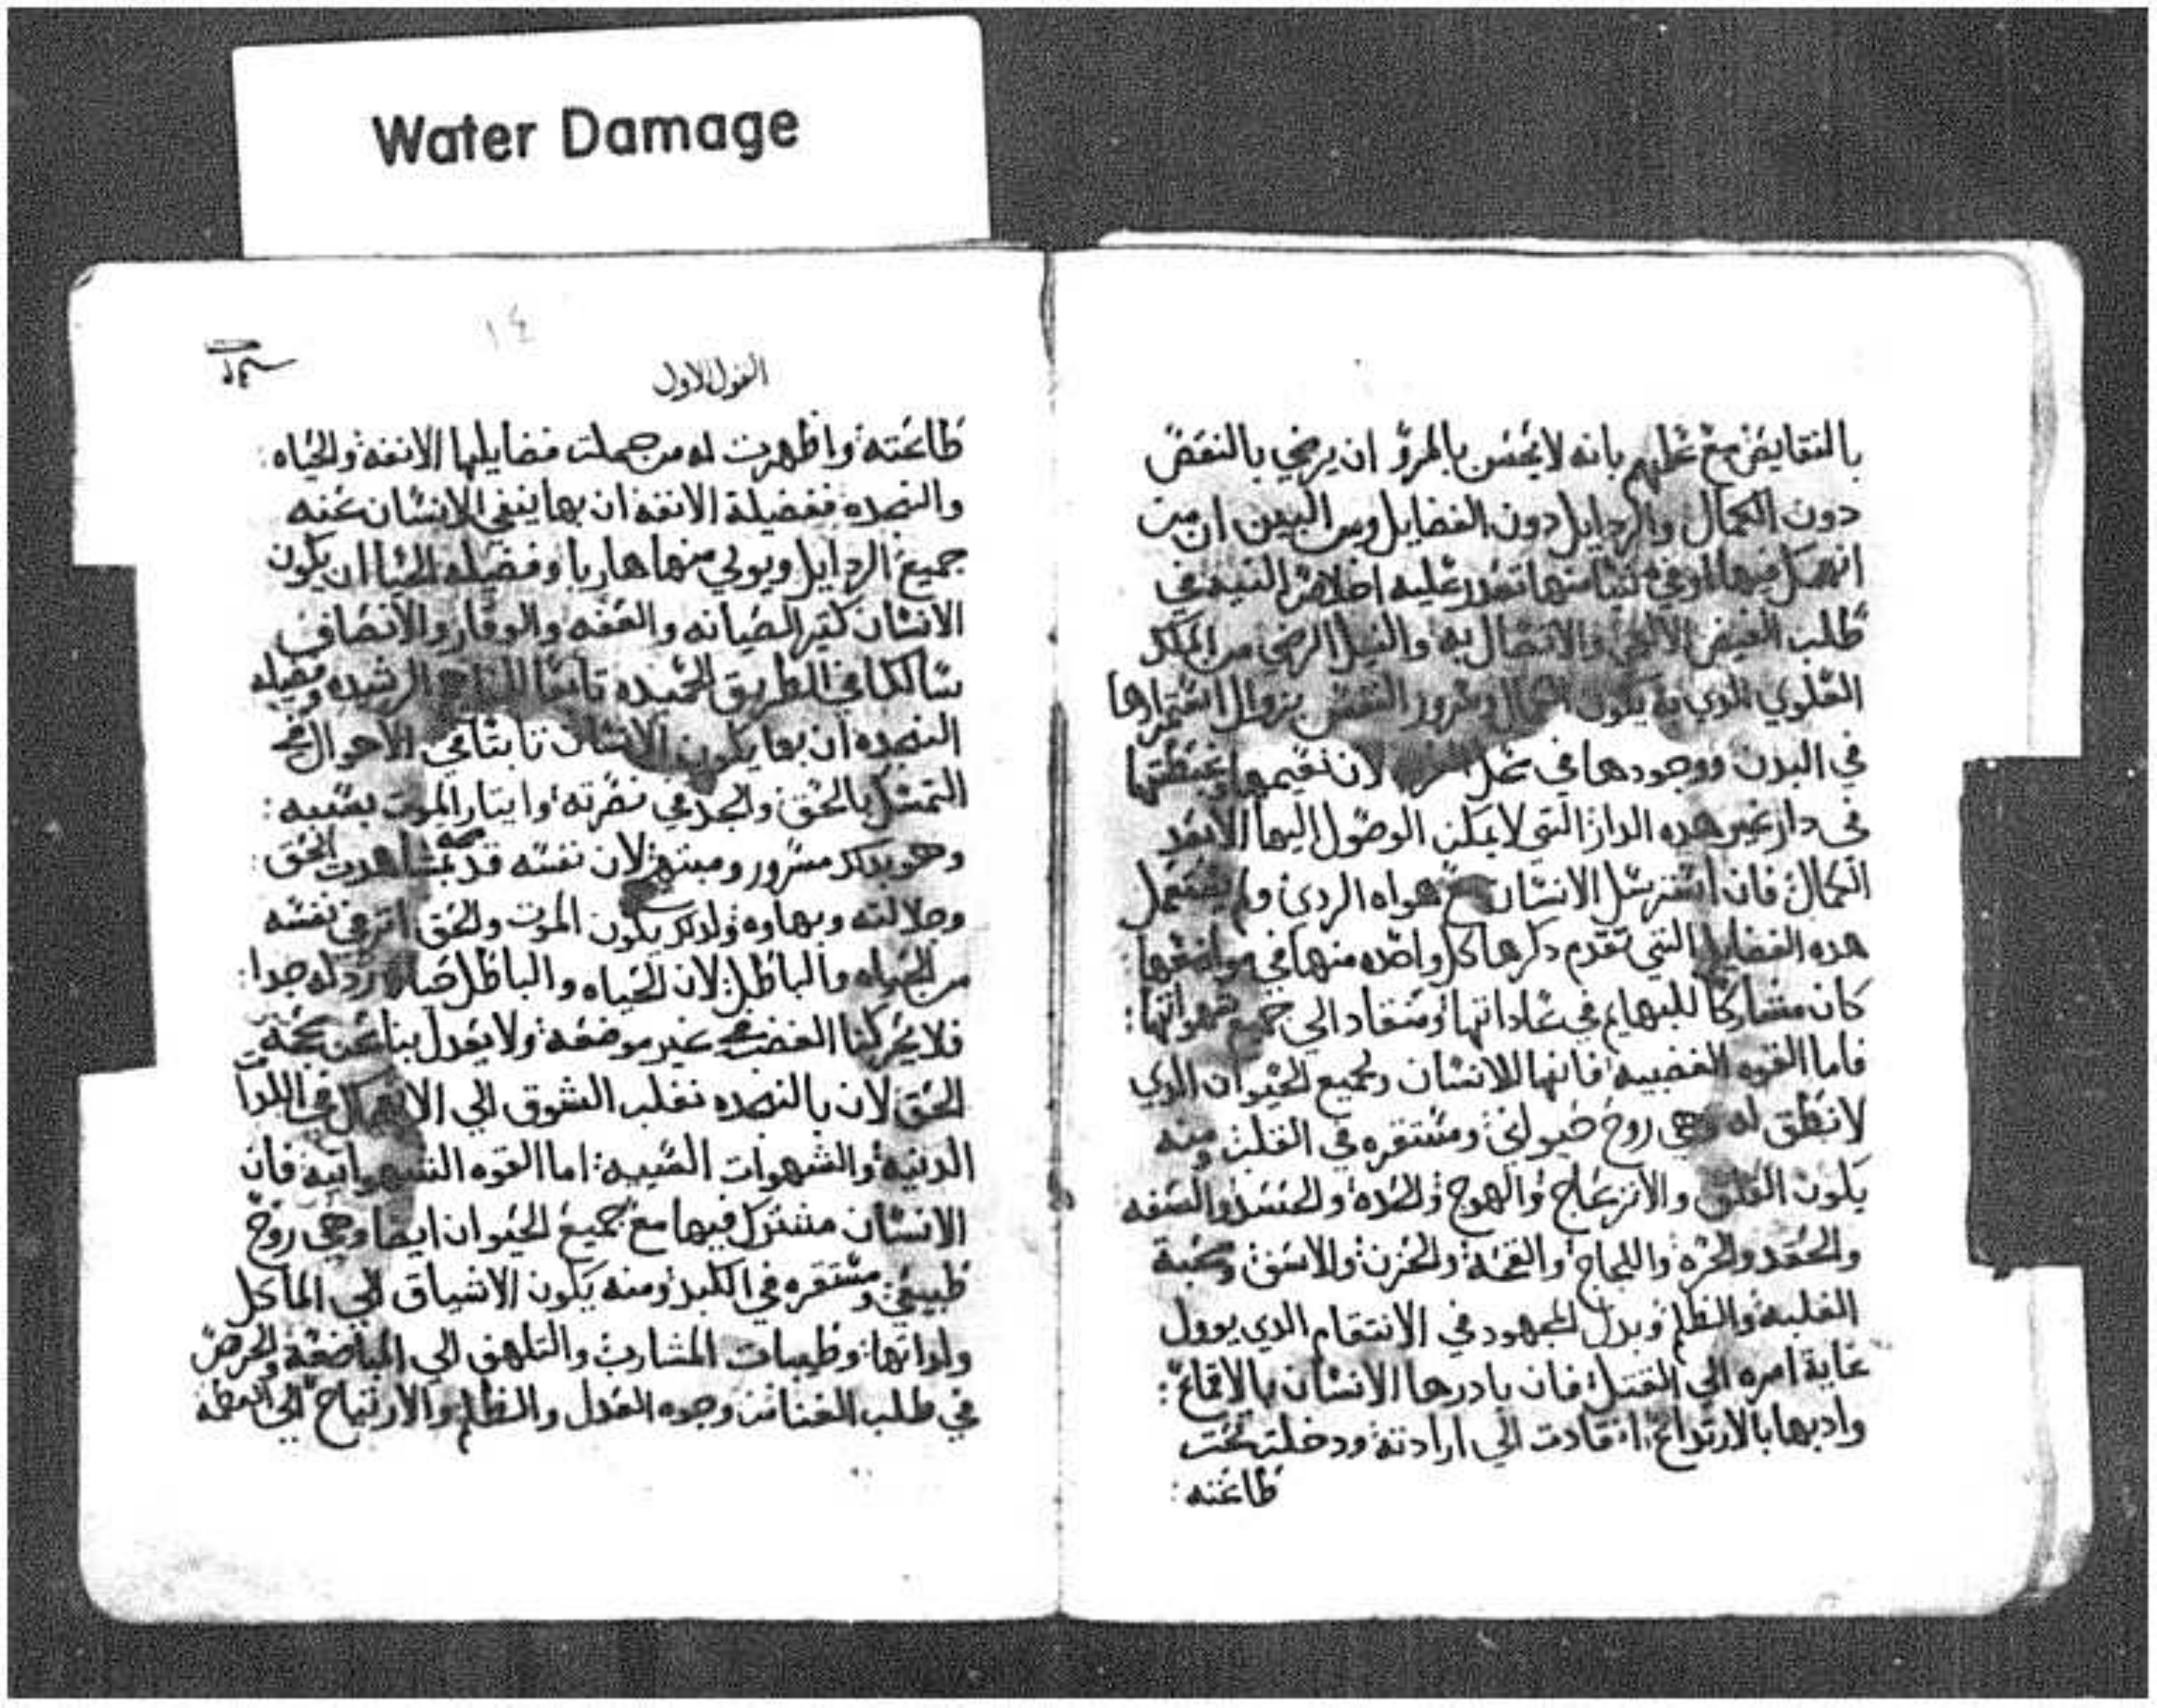 Water Damage
بالنقايض مع علمهم بانه لا يحسن بالمرؤ ان يرضي بالنقض
دون الكمال والردايل دون الفضايل ومن البين ان من
انهمل فيها تعدر عليه اخلاص النيه في
طلب الفيض والاتصال به والنيل الرضي من الملك
العلوي الدي به يكون وسرور النفس بزوال استقرارها
في البدن ووجودها في لان نعيمها وغبطتها
في دار غير هده الدار التي لا يمكن الوصول اليها الا بعد
الكمال فان استرسل الانسان مع هواه الردي ولم يستعمل
هده الفضايل التي تقدم دكرها كل واحده منها في مواضعها
كان مشاركا للبهايم في عاداتها ومنقاد الي جميع شهواتها:
فاما القوه الغضبيه فانها للانسان ولجميع الحيوان الدي
لا نطق له وهي روح حيواني ومستقره في القلب ومنه
يكون القلق والانزعاج والهوج والحده والحسد والسفه
والحقد والحره واللجاج والقحة والحزن والاسف ومحبة
الغلبه والظلم وبدل المجهود في الانتقام الدي يوول
غاية امره الي القتل فان بادرها الانسان بالاقماع:
وادبها بالارتداع انقادت الي ارادته ودخلت تحت
طاعته:
١٤
القول الاول
طاعته واظهرت له من جملت فضايلها الانفه والحياه:
والنجده ففضيلة الانفه ان بها ينفي الانسان عنه
جميع الردايل ويولي منها هاربا وفضيله الحيا ان يكون
الانسان كثير الصيانه والعفه والوقار والانصاف
سالكا في الطريق الحميده تابعا الرشيده وفضيله
النجده ان بها يكون الانسان تابتا في الاحوال في
التمسك بالحق والجد في نصرته وايتار الموت بسببه:
وهو بدلك مسرور ومبتهج لان نفسه قد بمشاهدت الحق:
وجلالته وبهاوه ولدلك يكون الموت والحق اتر في نفسه
من الحياه والباطل لان الحياه والباطل ردله جدا:
فلا يحركنا الغضب في غير موضعه ولا يعدل بنا عن محبة
الحق لان بالنجده نغلب الشوق الي الانهمال في اللدات
الدنيه والشهوات السيه: اما القوه الشهوانيه فان
الانسان مشترك فيها مع جميع الحيوان ايضا وهي روح
طبيعي ومستقره في الكبد ومنه يكون الاشياق الي الماكل
ولداتها وطيبات المشارب والتلهف الي المباضعة والحرص
في طلب الغنا من وجوه العدل والظلم والارتياح الي العظمه